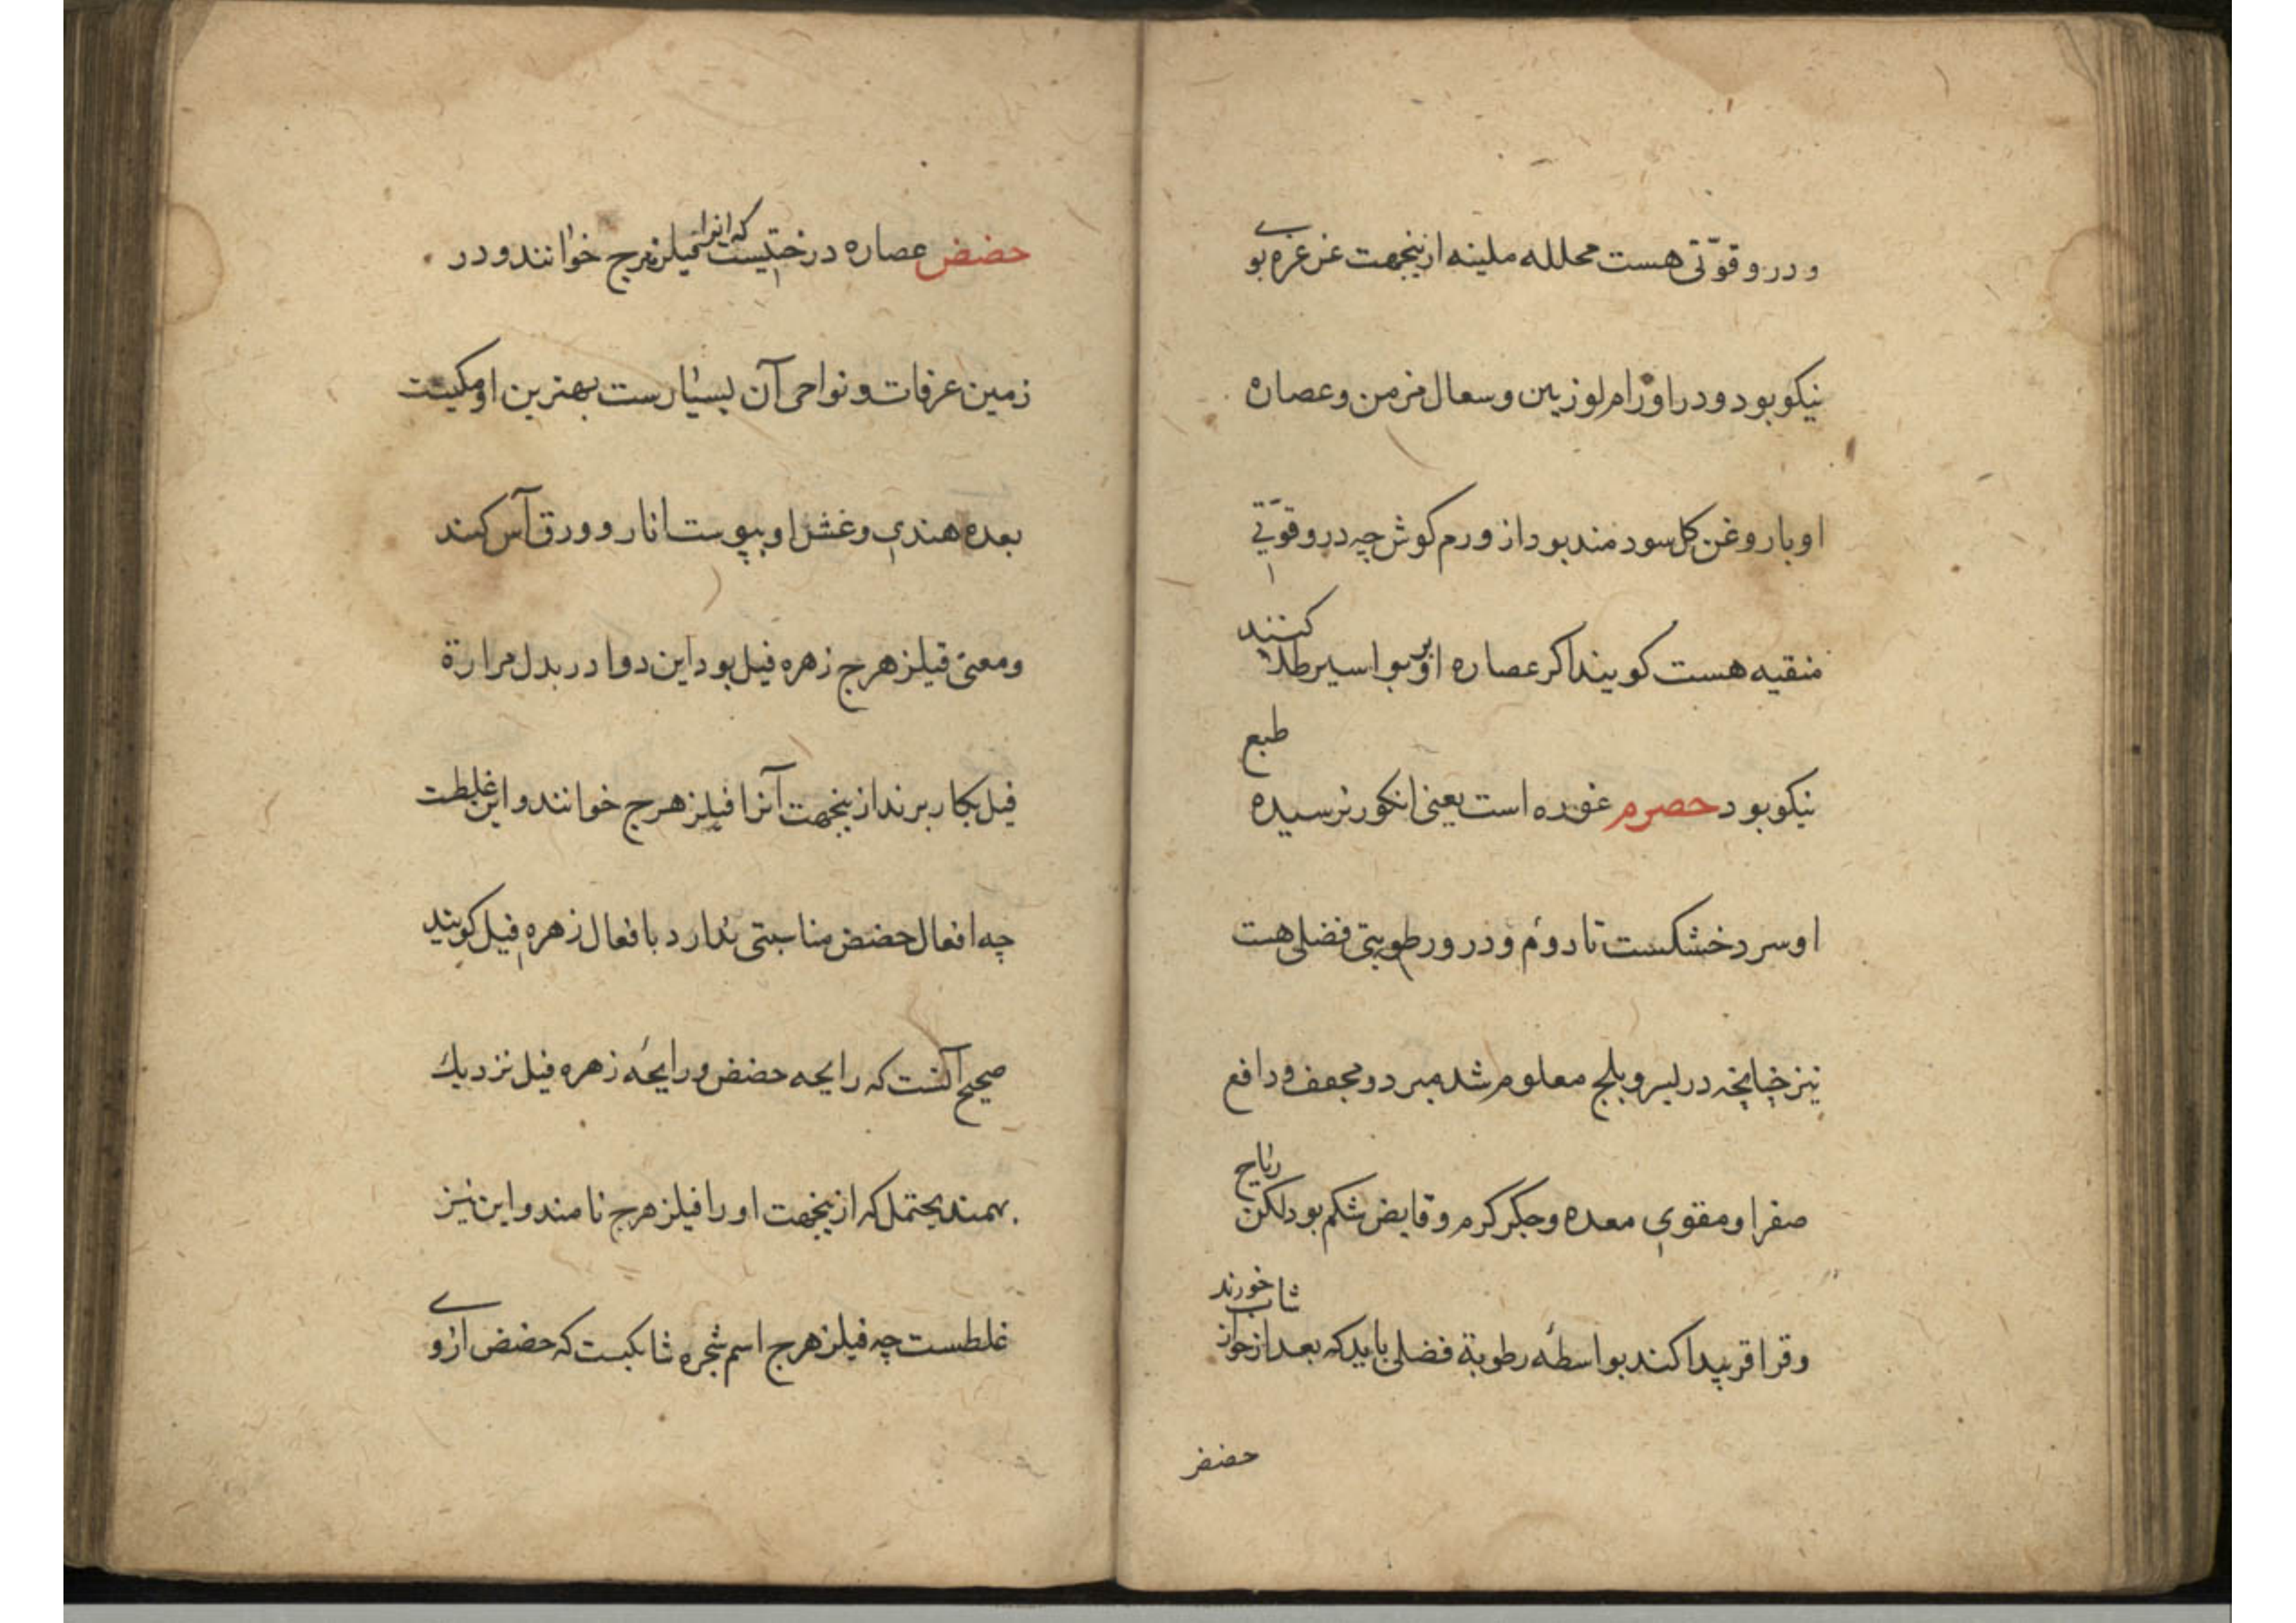 و درو قوّتی هست محلله ملینه ازینجهت غرغره بوی
نیکو بود و در اورام لوزتین و سعال مزمن و عصاره
او با روغن کل سودمند بود از ورم کوش چه درو قوّتی
منقیه هست کویند اکر عصاره او بر بواسیر طلا کنند
نیکو بود حصرم غوره است یعنی انکور نرسیده طبع
او سرد خشکست تا دوم و درو رطوبتی فضلی هست
نیز چنانچه در بسر و بلح معلوم شد مبرد و مجفف و دافع
صفرا و مقوی معده و جکر کرم و قابض شکم بود لکن ریاح
و قراقر پیدا کند بواسطهٔ رطوبة فضلی باید که بعد از خوردن
حضض
حضض عصاره درختیست که انرا فیلزهرج خوانند و در
زمین عرفات و نواحی آن بسیارست بهترین او مکیست
بعده هندی و غش او بپوست انار و ورق آس کنند
و معنی فیلزهرج زهره فیل بود این دوا در بدل مرارة
فیل بکار برند ازینجهت آنرا فیلزهرج خوانند و این غلطست
چه افعال حضض مناسبتی ندارد با فعال زهره فیل کویند
صحیح آنست که رایحه حضض و رایحهٔ زهره فیل نزدیك
بهمند یحتمل که ازینجهت او را فیلزهرج نامند و این نیز
غلطست چه فیلزهرج اسم شجره شایکیست که حضض ازوی